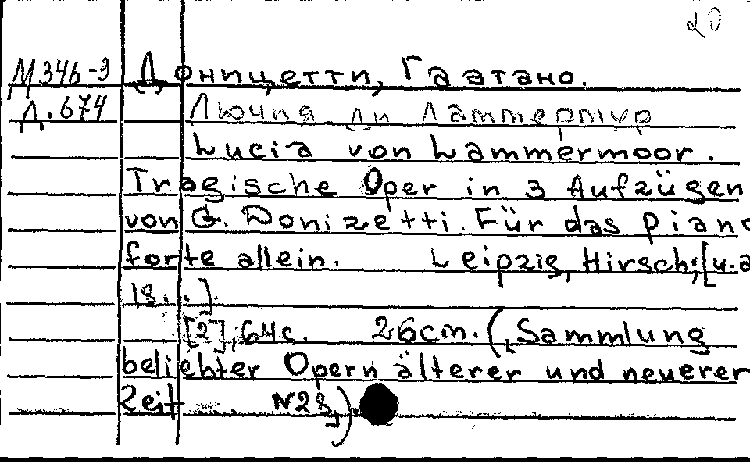 20
М346-9 Доницетти, Гаатано.
Д.674 Лючия ди Ламмермур
Lucia von Lammermoor.
Tragische Oper in 3 Aufzügen
von G. Donizetti. Für das Piano
forte allein. Leipzig, Hirsch,[u.a
18..]
[2],64с. 26cm. („Sammlung
beliebter Opern älterer und neuerer
Zeit N28“)